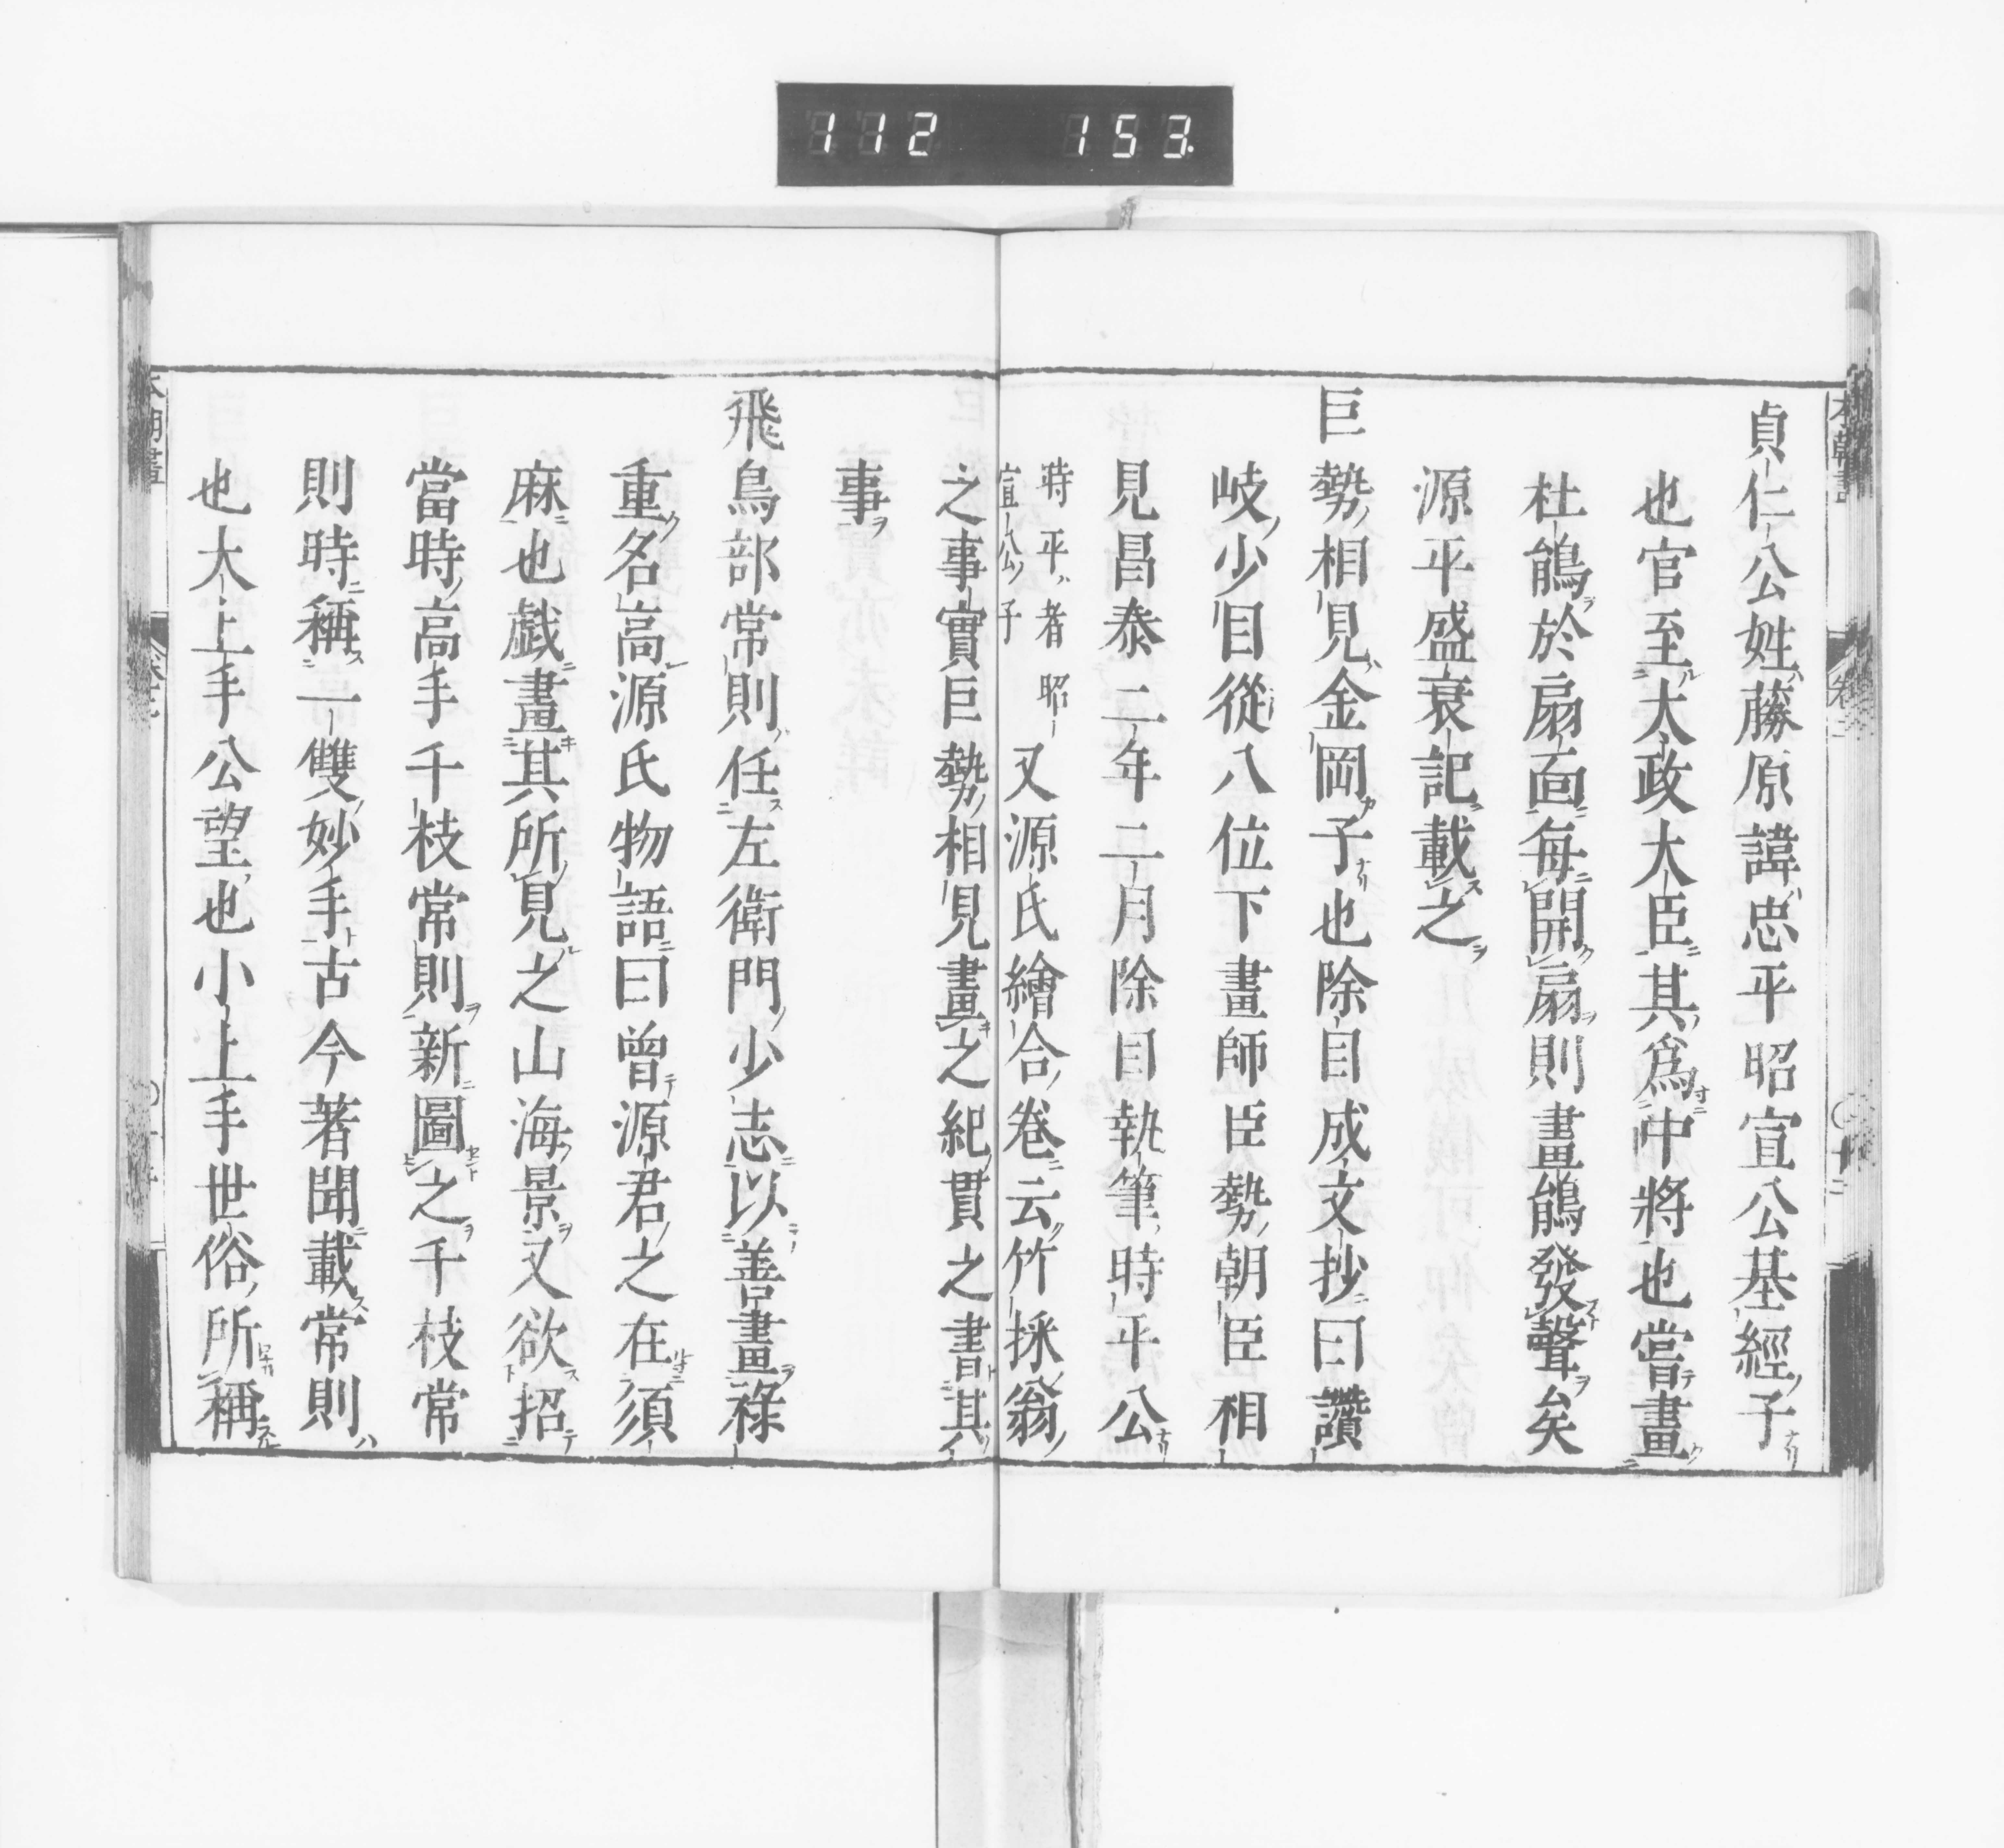 112 153.
貞仁公姓藤原諱忠平昭宣公基經子
也官至大政大臣其爲中將也嘗畫
杜鵑於扇面每開扇則畫鵑發聲矣
源平盛衰記載之
巨勢相見金岡子也除目成文抄曰讚
岐少目從八位下畫師臣勢朝臣相
見昌泰二年二月除目執筆時平公
時平者昭
宣公子
又源氏繪合卷云竹採翁
之事實巨勢相見畫之紀貫之書其
事
飛鳥部常則任左衛門少志以善畫祿
重名高源氏物語曰曾源君之在須
麻也戲畫其所見之山海景又欲招
當時高手千枝常則新圖之千枝常
則時稱一雙妙手古今著聞載常則
也大上手公望也小上手世俗所稱